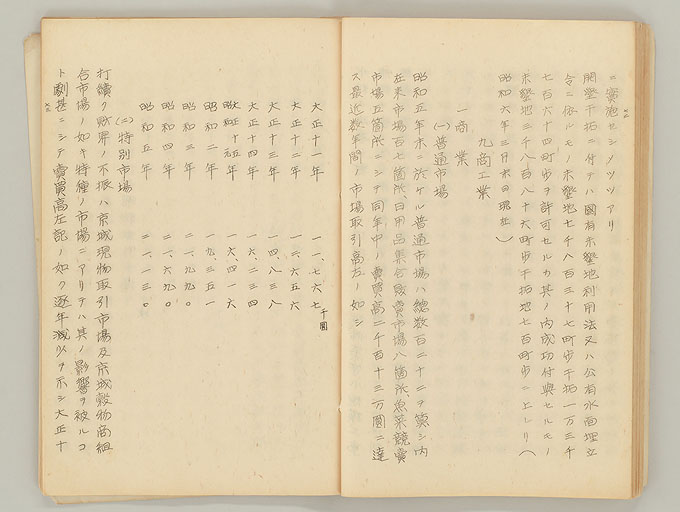 ニ實施セシメツツアリ
開墾干拓ニ付テハ國有未墾地利用法又ハ公有水面埋立
令ニ依ルモノ未墾地七千八百三十七町步干拓一万三千
七百六十四町步ヲ許可セルカ其ノ內成功付與セルモノ
未墾地三千八百八十六町步干拓地七百町步ニ上レリ(
昭和六年三月末日現在)
九商工業
一商業
(一)普通市場
昭和五年末ニ於ケル普通市場ハ總數百二十二ヲ算シ內
在來市場百七箇所日用品集合販賣市場八箇所魚菜競賣
市場五箇所ニシテ同年中ノ賣買高二千百十三万圓ニ達
ス最近數年間ノ市場取引高左ノ如シ
大正十一年 一一、七六七千圓
大正十二年 一二、六五六
大正十三年 一四、八三八
大正十四年 一六、二三四
昭和元年 一六、四一六
昭和二年 一九、三五一
昭和三年 二一、九九〇
昭和四年 二一、六九〇
昭和五年 二一、一三〇
(二)特別市場
打續ク財界ノ不振ハ京城現物取引市場及京城穀物商組
合市場ノ如キ特種ノ市場ニアリテハ其ノ影響ヲ被ルコ
ト劇甚ニシテ賣買高左記ノ如ク逐年減少ヲ示シ大正十